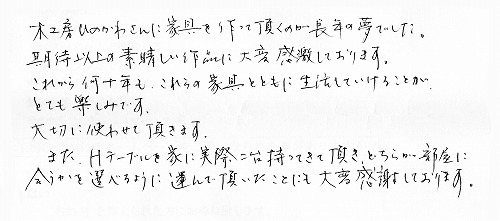 木工房ひのかわさんに家具を作って頂くのが長年の夢でした。
期待以上の素晴しい作品に大変感激しております。
これから何十年も、これらの家具とともに生活していけることが、
とても楽しみです。
大切に使わせて頂きます。
また、Hテーブルを家に実際二台持ってきて頂き、どちらが部屋に
合うかを選べるように運んで頂いたことにも大変感謝しております。